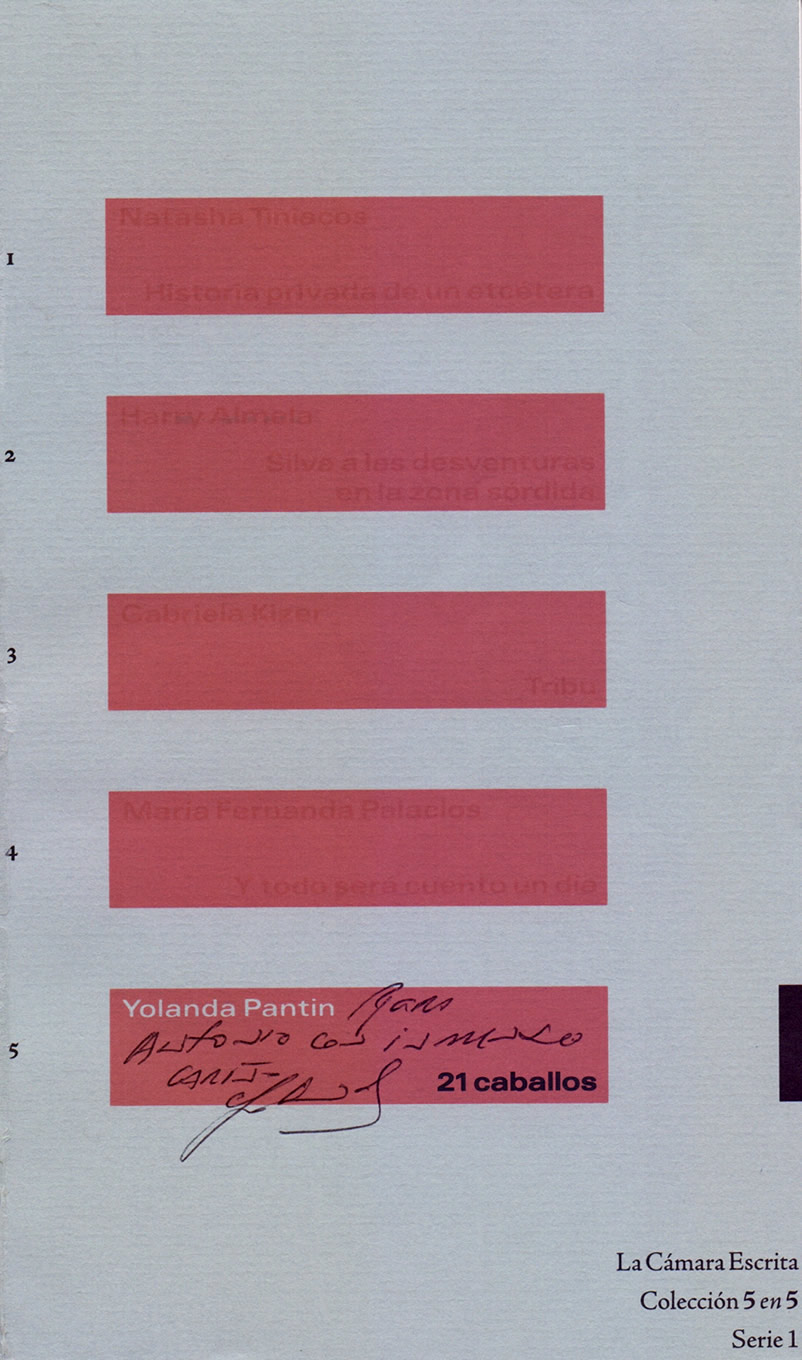 1
Natasha Tiniacos
Historia privada de un etcétera
2
Harry Almela
Silva a las desventuras
en la zona sórdida
3
Gabriela Kizer
Tribu
4
María Fernanda Palacios
Y todo será cuento un día
5
Yolanda Pantin para
Antonio con inmenso
cariño
21 caballos
La Cámara Escrita
Colección 5 en 5
Serie 1